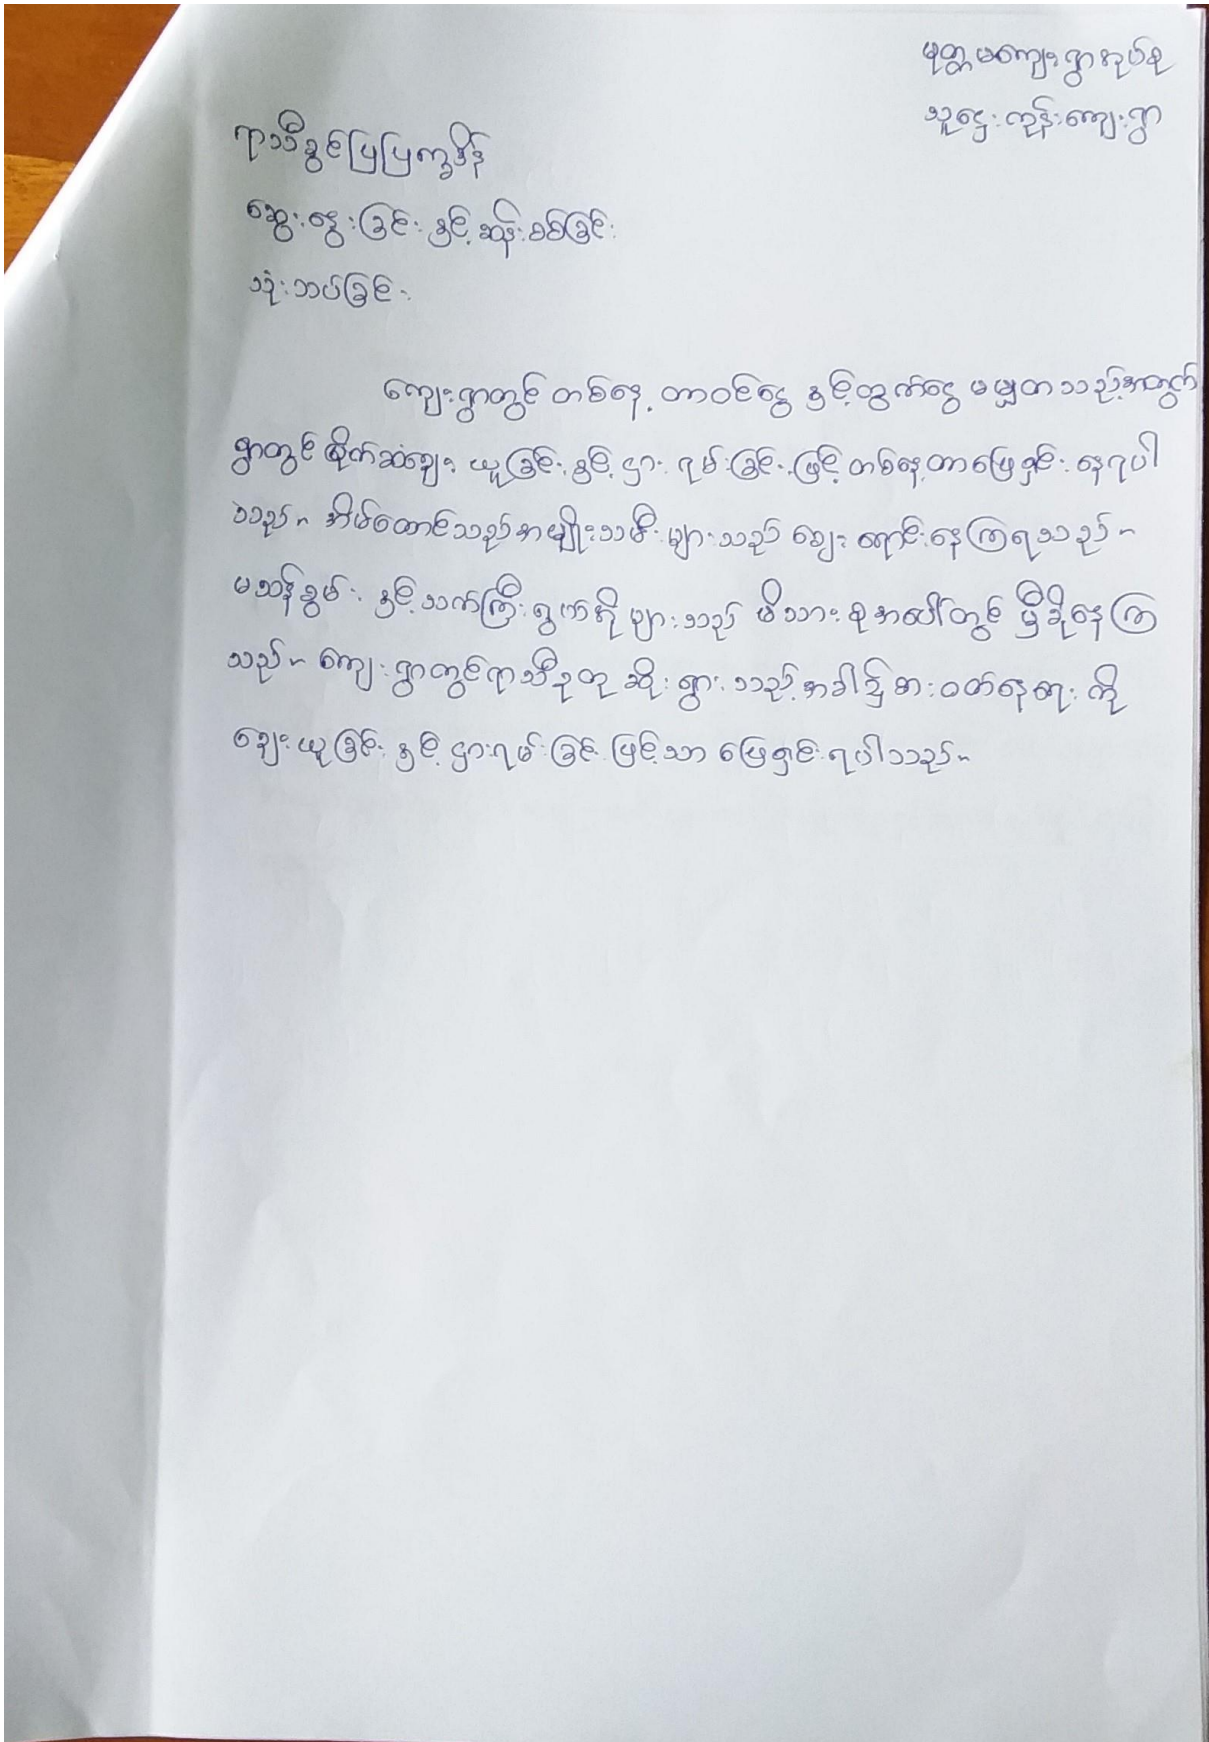 မုတ္တမကျေးရွာအုပ်စု
သူဌေးကုန်းကျေးရွာ
ရာသီခွင်ပြပြက္ခဒိန်
ဆွေးနွေးခြင်းနှင့်ဆန်းစစ်ခြင်း
သုံးသပ်ခြင်း
ကျေးရွာတွင် တစ်နေ့တာဝင်ငွေ နှင့်ထွက်ငွေ မမျှတသည့်အတွက်
ရွာတွင် စိုက်ဆံချေးယူခြင်းနှင့် ငှားရမ်းခြင်းဖြင့် တစ်နေ့တာဖြေရှင်းနေရပါ
သည်။ အိမ်ထောင်သည်အမျိုးသမီးများသည် ချေးရောင်းနေကြရသည်။
မသန်စွမ်းနှင့်သက်ကြီးရွယ်အိုများသည် မိသားစုအပေါ်တွင် မှီခိုနေကြ
သည်။ ကျေးရွာတွင်ရာသီဥတုဆိုးရွားသည့်အခါ၌စားဝတ်နေရေးကို
ချေးယူခြင်းနှင့် ငှားရမ်းခြင်းဖြင့်သာ ဖြေရှင်းရပါသည်။